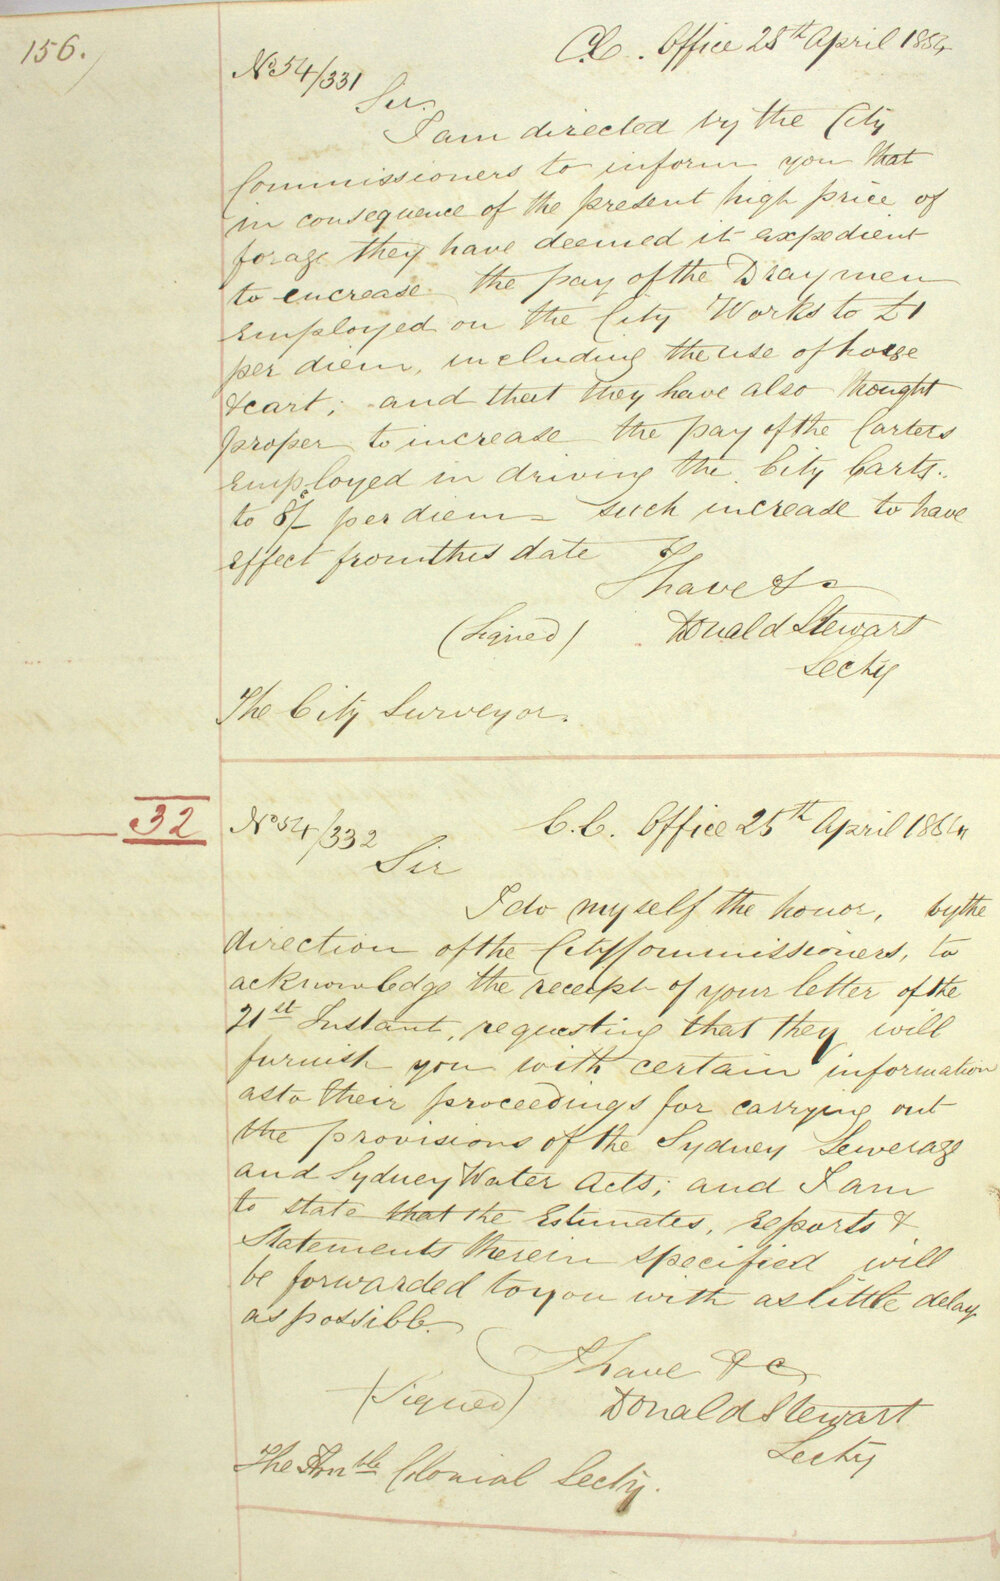 156.
C.C. Office 25th April 1854
No 54/331
Sir,
I am directed by the City
Commissioners to inform you that
in consequence of the present high price of
forage they have deemed it expedient
to encrease the pay of the Draymen
employed on the City Works to £1
per diem, including the use of horse
& cart; and that they have also thought
proper to increase the pay of the Carters
employed in driving the City Carts.
to 8/- per diem - such increase to have
effect from this date
I have &c
(Signed) Donald Stewart
Secty
The City Surveyor.
32
No 54/332
C.C. Office 25th April 1854
Sir
I do myself the honor, by the
direction of the City Commissioners, to
acknowledge the receipt of your letter of the
21st Instant, requesting that they will
furnish you with certain information
as to their proceedings for carrying out
the provisions of the Sydney Sewerage
and Sydney Water Acts; and I am
to state that the Estimates, reports &
Statements therein specified will
be forwarded to you with as little delay
as possible.
I have &c
(Signed) Donald Stewart
Secty
The Honble Colonial Secty.